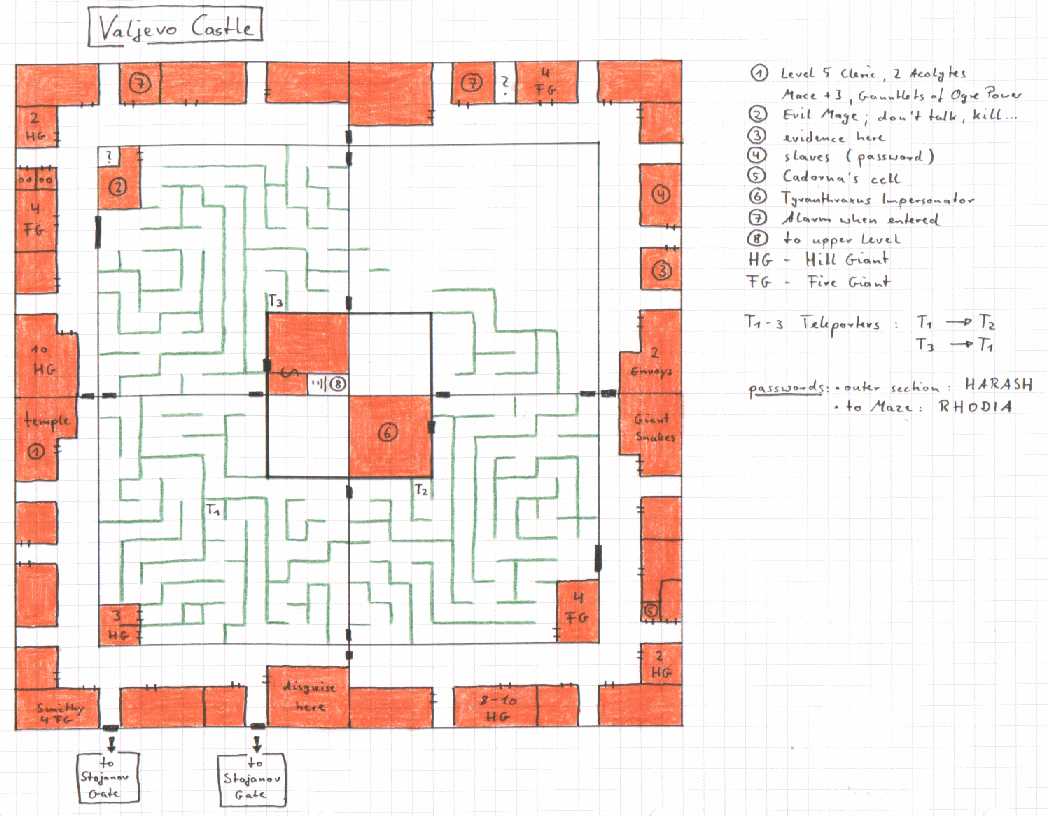 Valjevo Castle
7
7
?
4
FG
2
HG
?
2
4
FG
4
3
T3
10
HG
8
2
Envoys
temple
1
6
Giant
Snakes
T1
T2
3
HG
4
FG
5
2
HG
Smithy
4 FG
disguise
here
8-10
HG
to
Stojanov
Gate
to
Stojanov
Gate
1 Level 5 Cleric, 2 Acolytes
Mace +3, Gauntlets of Ogre Power
2 Evil Mage; don't talk, kill...
3 evidence here
4 slaves (password)
5 Cadorna's cell
6 Tyranthraxus Impersonator
7 Alarm when entered
8 to upper Level
HG - Hill Giant
FG - Fire Giant
T1-3 Teleporters : T1 → T2
T3 → T1
passwords: • outer section : HARASH
• to Maze : RHODIA